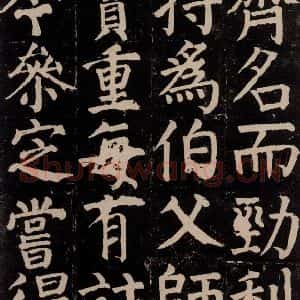 齊名而勁利
特為伯父師
賞重每有
令參定嘗得
Shufawang.CN